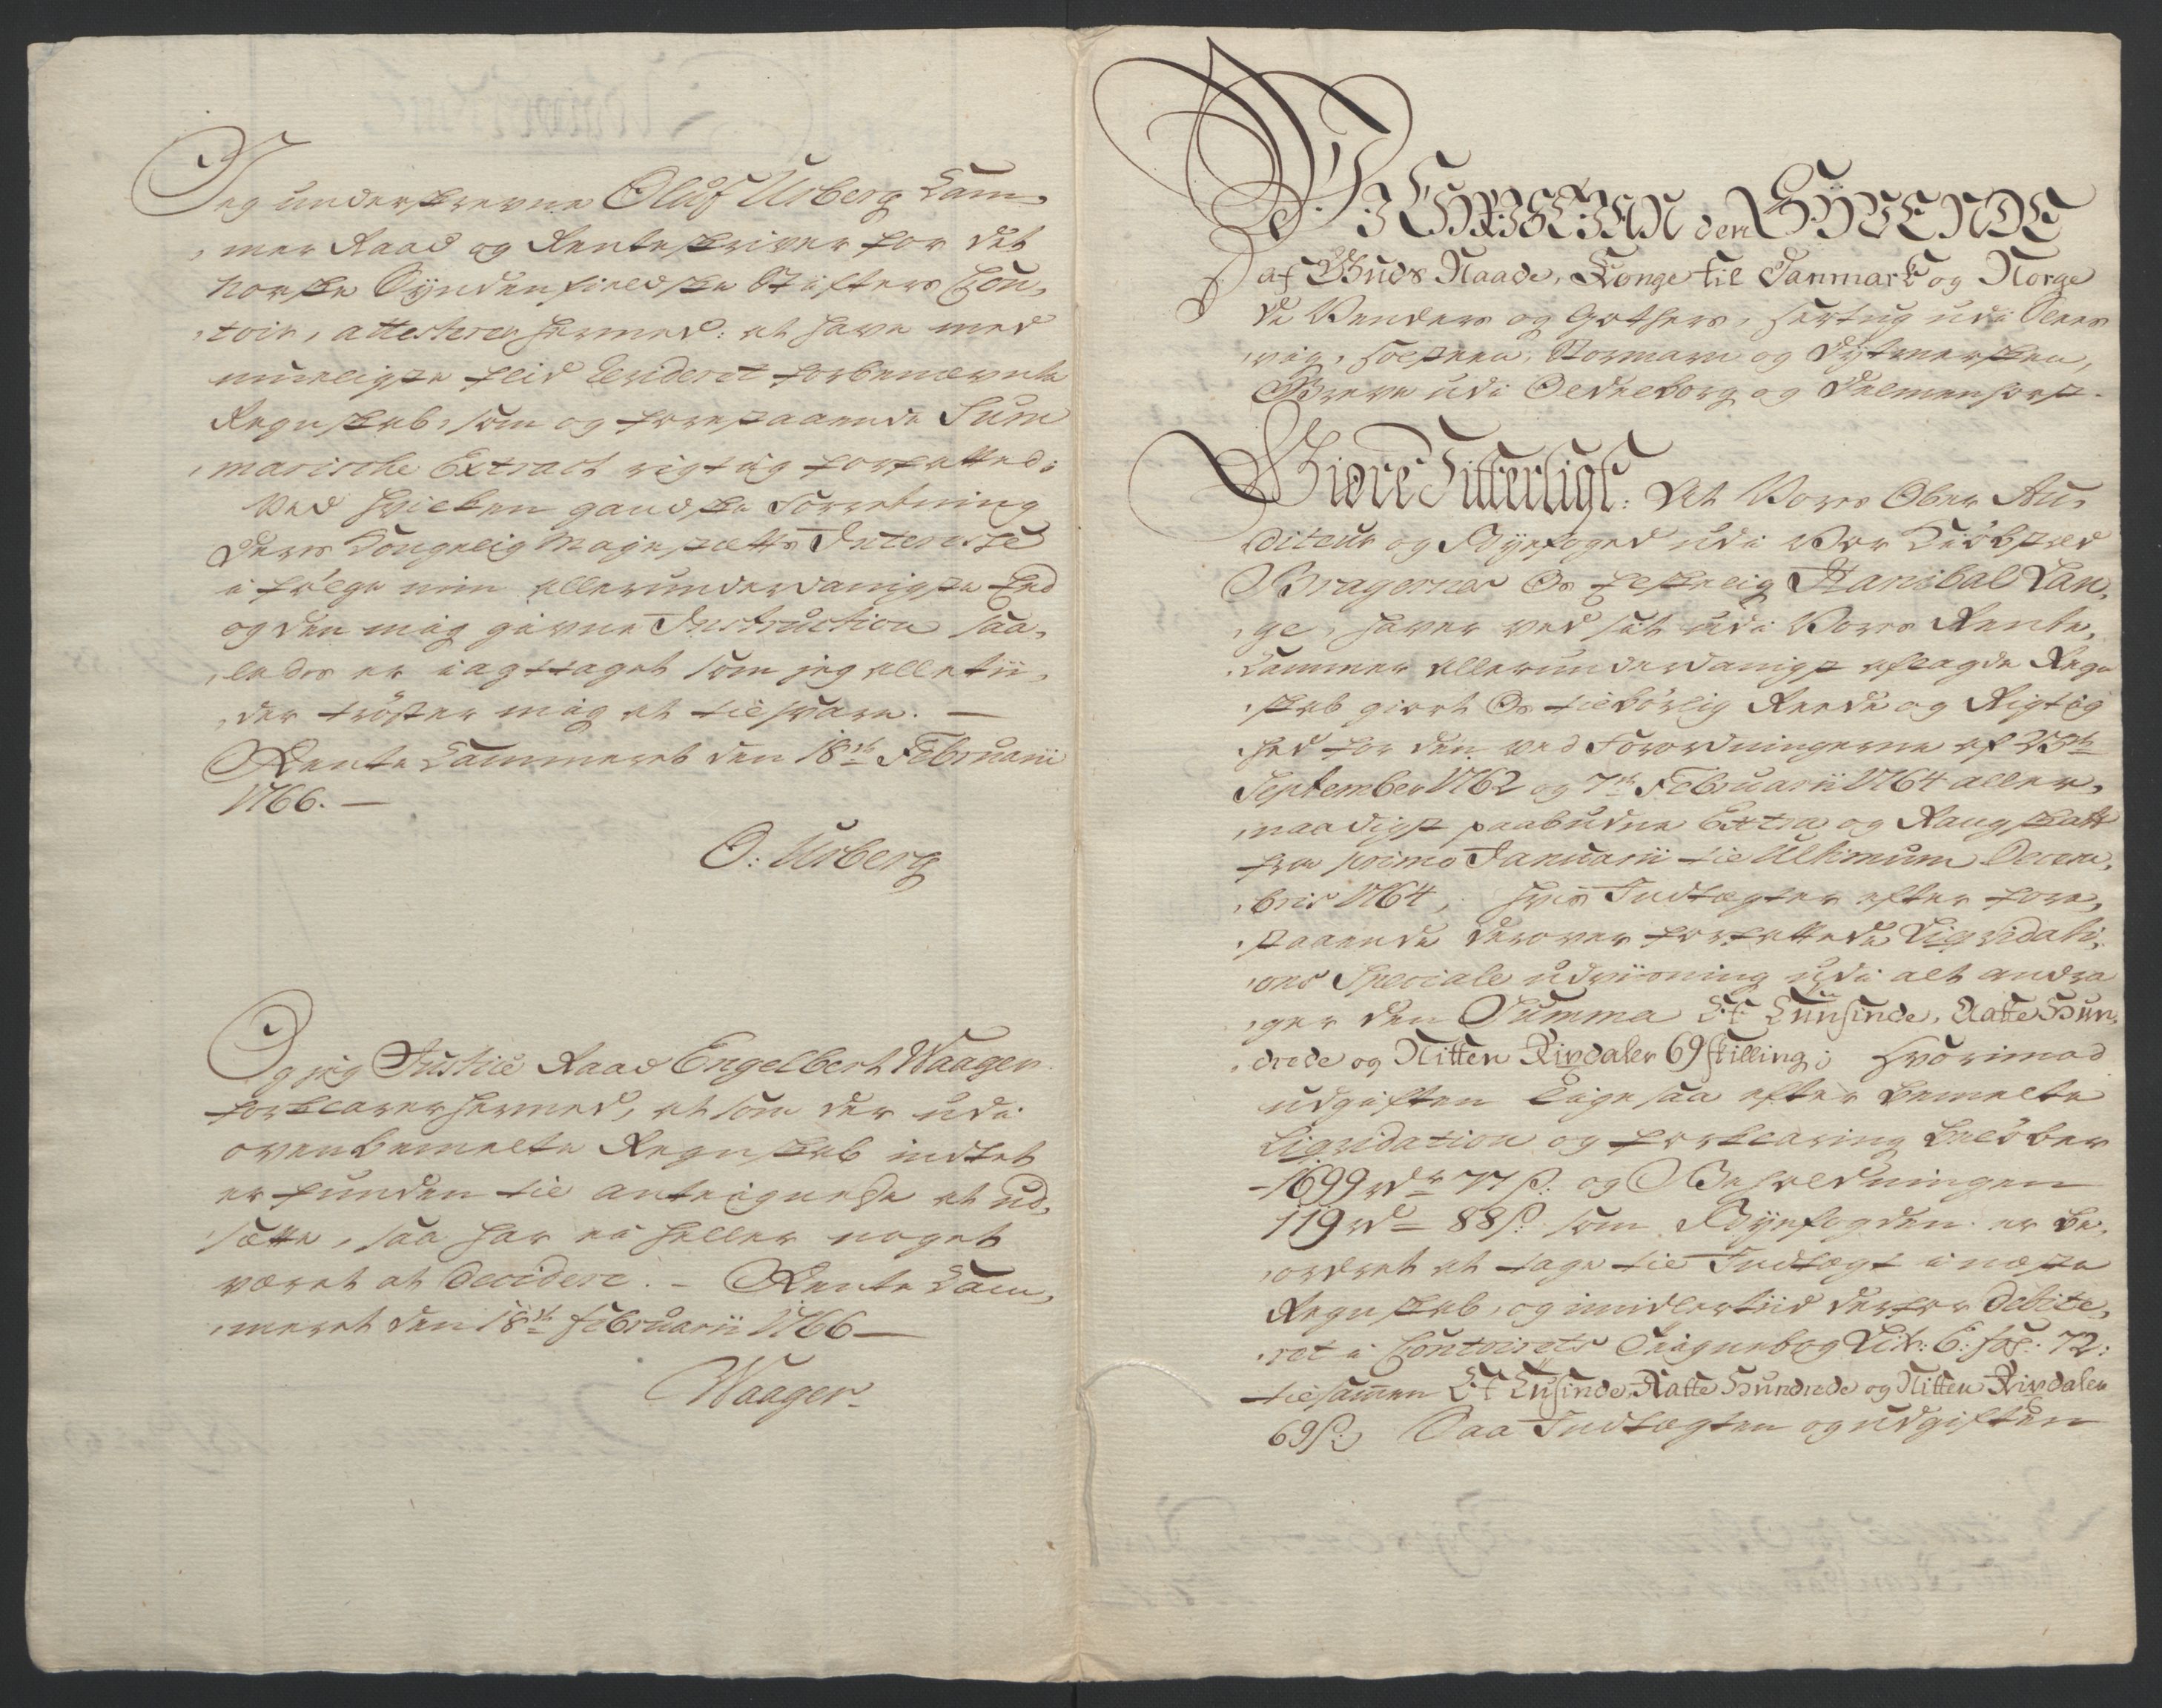 Jeg underskrevne Oluf Urberg Cam-
mer Raad og Renteskriver for det
Norske Syndenfieldske Stifters Con-
toir, attesterer hermed: at have med
mueligste flid Revideret forbenævnte
Regnskab, som og forestaaende Sum
marische Extract rigtig forfatted;
Ved hvilken gandske Forretning
Deris Kongelig Majestætts Interesse
i følge min allerunderdanigste Eed
og den mig givne Instruction saa-
ledes er iagttaget som jeg alletii-
der trøster mig at tilsvare. —
Rente Cammeret den 18de Februarii
1766. —
O: Urberg
Og jeg Justice Raad Engelbert Waager
forklarer hermed, at som der udi
ovenbemelte Regnskab indtet
er funden til anteignelse at ud-
sætte, saa har ei heller noget
været at Decidere. — Rente Cam-
meret den 18de Februarii 1766 —
Waager.
VI CHRISTIAN den SYVENDE
af Guds Naade, Konge til Danmark og Norge
de Venders og Gothers, Hertug udi Sles-
vig, Holsteen, Stormarn og Dytmersken,
Greve udi Oldenborg og Delmenhorst.
Giøre Vitterligt: At Vores Ober Au-
diteur og Byefoged udi Vor Kiøbsted
Bragernes Os Elskelig Hanibal Lan-
ge, haver ved sit udi Vores Rente-
Cammer allerunderdanigst aflagde Regn
skab giort Os tilbørlig Reede og Rigtig
hed for den ved Forordningerne af 23de
September 1762 og 7de Februarii 1764 aller-
naadigst paabudne Extra og Rangskatt
fra primo Januarii til Ultimum Decem-
bris 1764, hvis Indtægter efter fore-
staaende derover forfattede Liqvidati-
ons Speciale udviisning udi alt andra
ger den Summa Et Tuusinde, Aatte Hun-
drede og Nitten Rixdaler 69 skilling; Hvorimod
udgiften ligesaa efter bemelte
Liqvidation og forklaring beløber
1699 rdr 77 s: og Beholdningen
119 rd 88 s: som Byefogden er be-
ordret at tage til Indtægt i næste
Regnskab, og imidlertiid derfor Debite-
ret i Contoirets Teignebog Litr: C: fol: 72:
tilsammen Et Tusinde, Aatte Hundrede og Nitten Rixdaler
69 s: Saa Indtægten og udgiften